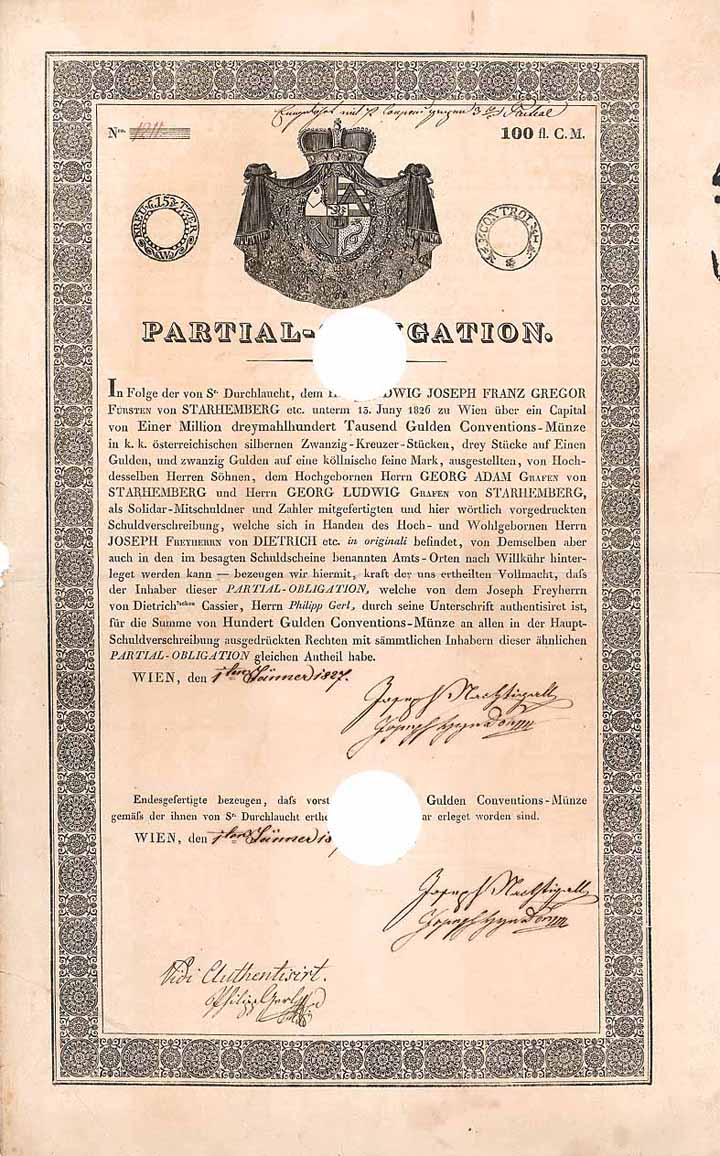 mit Coupons gegen Partial
Nro. 1211.
100 fl. C. M.
15
CONTROL
PARTIAL- GATION.
In Folge der von Sr. Durchlaucht, dem DWIG JOSEPH FRANZ GREGOR
Fürsten von STARHEMBERG etc. unterm 13. Juny 1826 zu Wien über ein Capital
von Einer Million dreymahlhundert Tausend Gulden Conventions-Münze
in k. k. österreichischen silbernen Zwanzig-Kreuzer-Stücken, drey Stücke auf Einen
Gulden, und zwanzig Gulden auf eine köllnische feine Mark, ausgestellten, von Hoch-
desselben Herren Söhnen, dem Hochgebornen Herrn GEORG ADAM Grafen von
STARHEMBERG und Herrn GEORG LUDWIG Grafen von STARHEMBERG,
als Solidar-Mitschuldner und Zahler mitgefertigten und hier wörtlich vorgedruckten
Schuldverschreibung, welche sich in Handen des Hoch- und Wohlgebornen Herrn
JOSEPH Freyherrn von DIETRICH etc. in originali befindet, von Demselben aber
auch in den im besagten Schuldscheine benannten Amts-Orten nach Willkühr hinter-
leget werden kann — bezeugen wir hiermit, kraft der uns ertheilten Vollmacht, dafs
der Inhaber dieser PARTIAL-OBLIGATION, welche von dem Joseph Freyherrn
von Dietrich'schen Cassier, Herrn Philipp Gerl, durch seine Unterschrift authentisiret ist,
für die Summe von Hundert Gulden Conventions-Münze an allen in der Haupt-
Schuldverschreibung ausgedrückten Rechten mit sämmtlichen Inhabern dieser ähnlichen
PARTIAL-OBLIGATION gleichen Antheil habe.
WIEN, den 1ten Jänner 1827.
Joseph Nachtigall
Joseph
Endesgefertigte bezeugen, dafs vorst Gulden Conventions-Münze
gemäfs der ihnen von Sr. Durchlaucht erthe ar erleget worden sind.
WIEN, den 1ten Jänner 18
Joseph Nachtigall
Joseph
Vidi Authentisirt.
Philipp Gerl